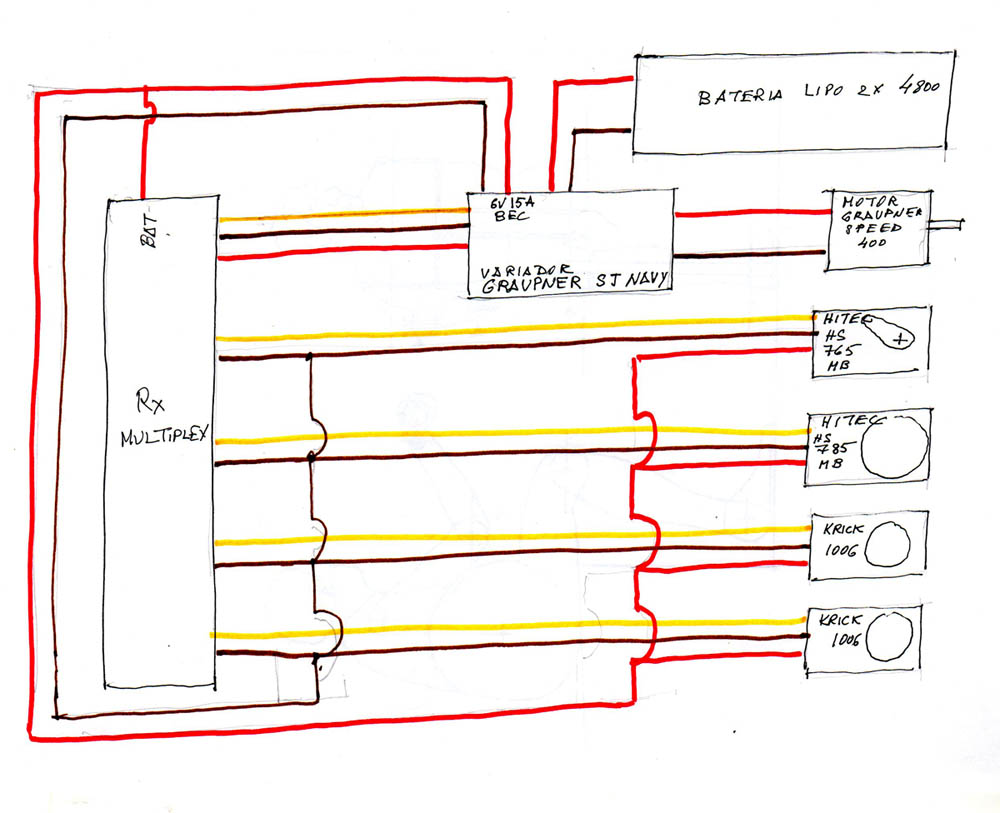 BATERIA LIPO 2X 4800
BAT
6V 15A
BEC
VARIADOR
GRAUPNER SJ NAVY
MOTOR
GRAUPNER
SPEED
400
HITEC
HS
765
MB
Rx
MULTIPLEX
HITEC
HS
785
MB
KRICK
1006
KRICK
1006